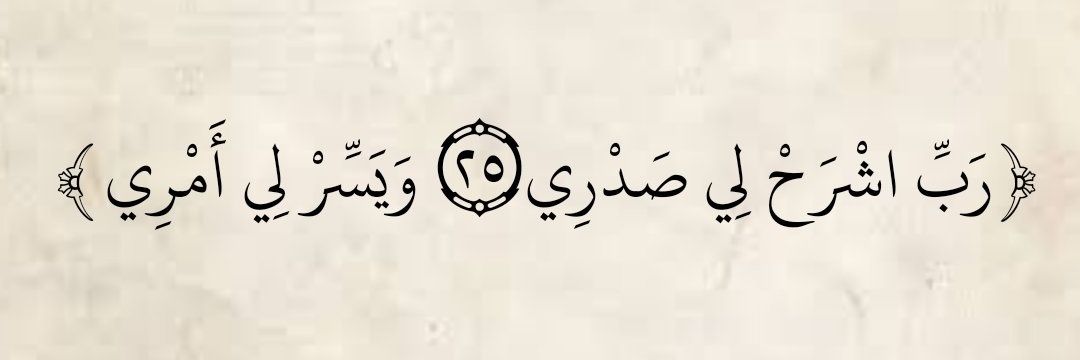 ﴿ رَبِّ اشْرَحْ لِي صَدْرِي ٢٥ وَيَسِّرْ لِي أَمْرِي ﴾